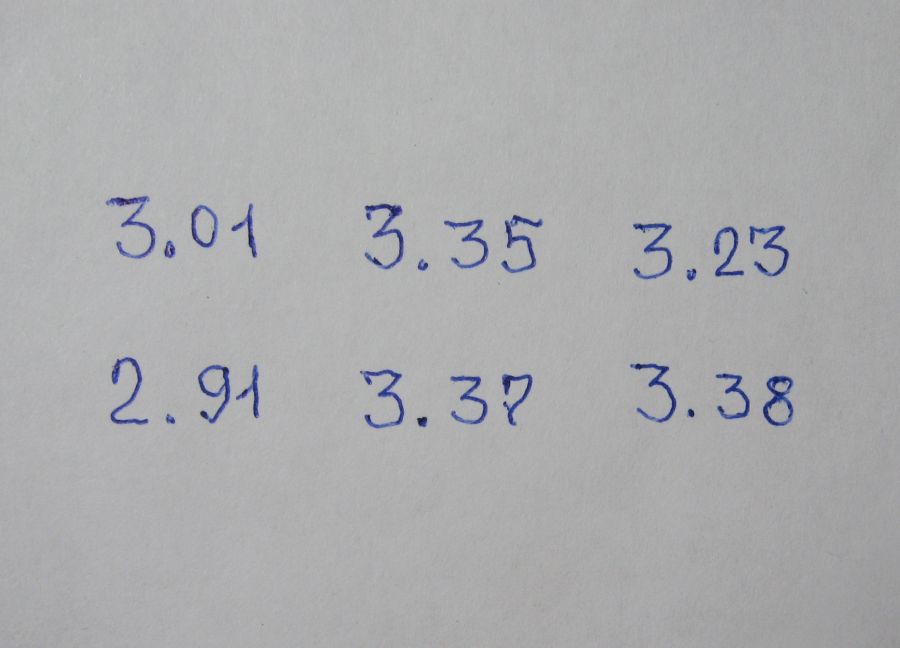 3.01 3.35 3.23
2.91 3.37 3.38